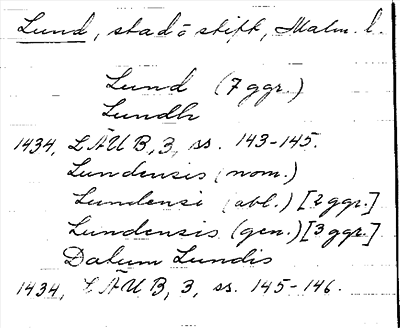 Lund, stad o stift, Malm. l.
Lund (7 ggr.)
Lundh
1434, LÄUB, 3, ss. 143-145.
Lundensis (nom.)
Lundensi (abl.) [2 ggr.]
Lundensis (gen.) [3 ggr.]
Datum Lundis
1434, LÄUB, 3, ss. 145-146.